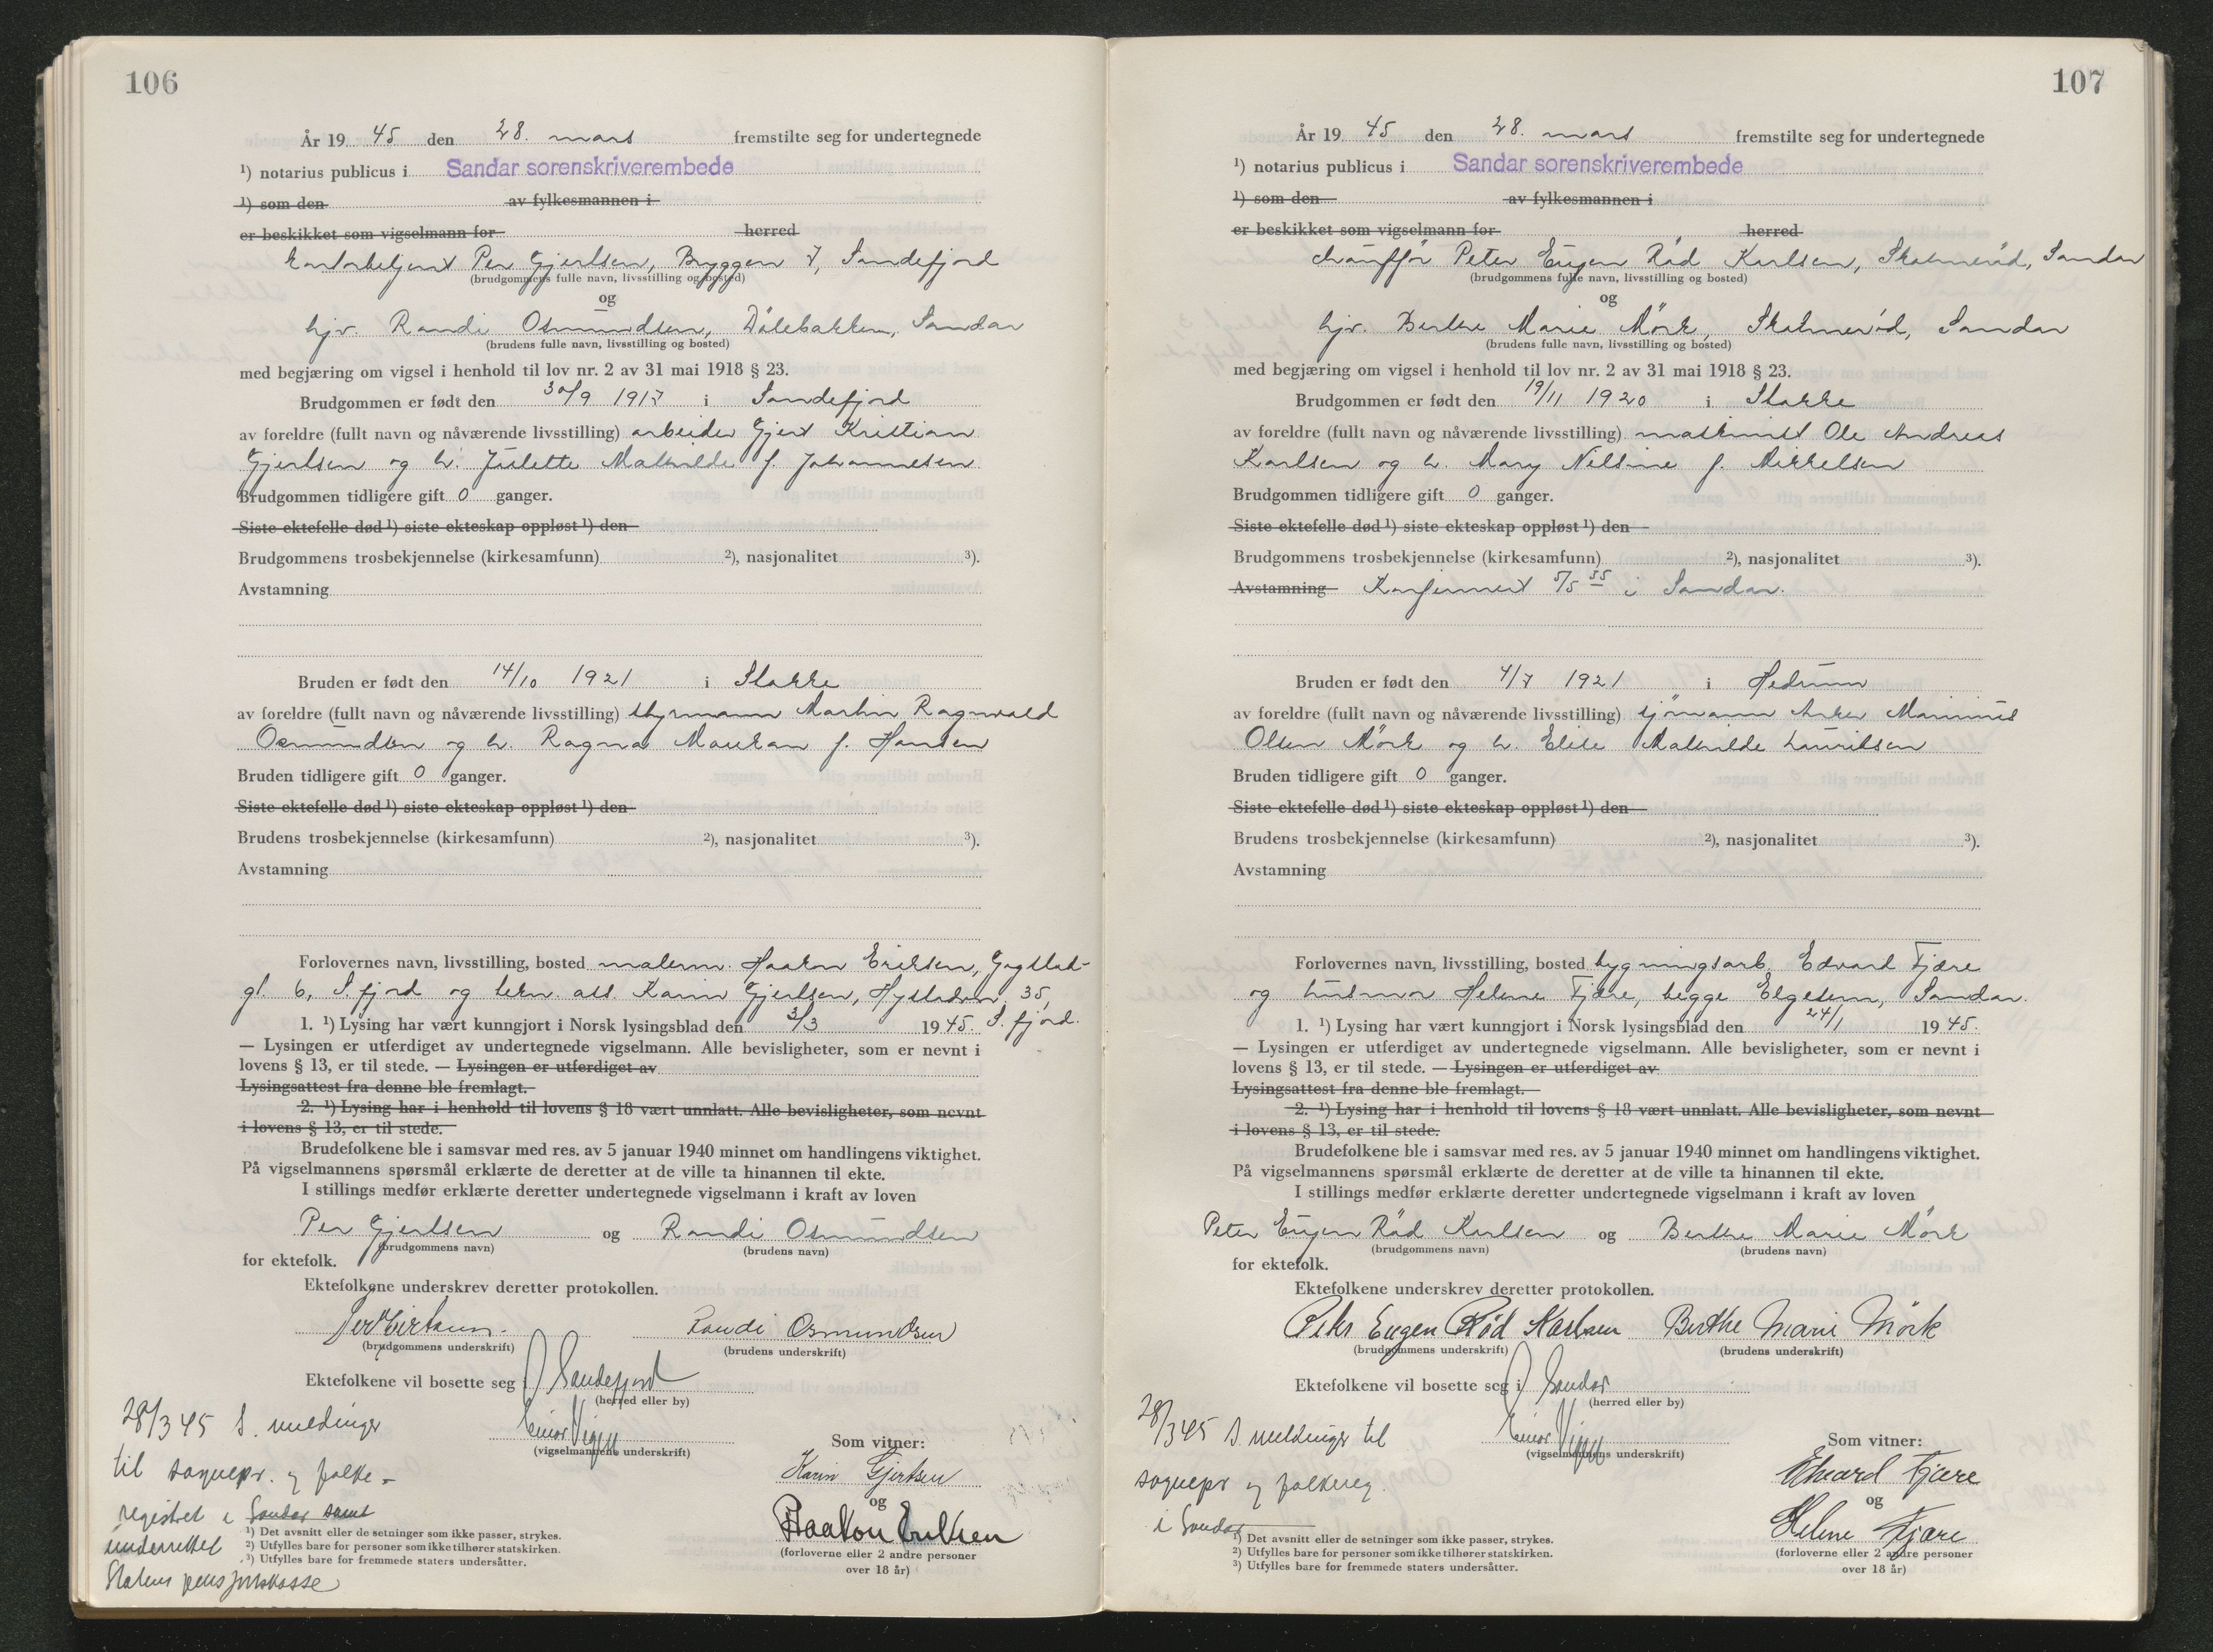 106
År 19 45 den 28. mars fremstilte seg for undertegnede
¹) notarius publicus i Sandar sorenskriverembede
¹) som den av fylkesmannen i
er beskikket som vigselmann for herred
kontorbetjent Per Gjertsen, Bryggen 7, Sandefjord
(brudgommens fulle navn, livsstilling og bosted)
og
hjv. Randi Osmundsen, Dølebakken, Sandar
(brudens fulle navn, livsstilling og bosted)
med begjæring om vigsel i henhold til lov nr. 2 av 31 mai 1918 § 23.
Brudgommen er født den 30/9 1917 i Sandefjord
av foreldre (fullt navn og nåværende livsstilling) arbeider Gjert Kristian
Gjertsen og h. Julette Mathilde f. Johannesen
Brudgommen tidligere gift 0 ganger.
Siste ektefelle død ¹) siste ekteskap oppløst ¹) den
Brudgommens trosbekjennelse (kirkesamfunn) ²), nasjonalitet ³).
Avstamning
Bruden er født den 14/10 1921 i Stokke
av foreldre (fullt navn og nåværende livsstilling) styrmann Martin Ragnvald
Osmundsen og h. Ragna f. Hansen
Bruden tidligere gift 0 ganger.
Siste ektefelle død ¹) siste ekteskap oppløst ¹) den
Brudens trosbekjennelse (kirkesamfunn) ²), nasjonalitet ³).
Avstamning
Forlovernes navn, livsstilling, bosted malerm. Haakon Eriksen, Gogstad-
gt. 6, S.fjord og ass. Karin Gjertsen, 35,
1. ¹) Lysing har vært kunngjort i Norsk lysingsblad den 3/3 19 45. S.fjord.
— Lysingen er utferdiget av undertegnede vigselmann. Alle bevisligheter, som er nevnt i
lovens § 13, er til stede. — Lysingen er utferdiget av
Lysingsattest fra denne ble fremlagt.
2. ¹) Lysing har i henhold til lovens § 18 vært unnlatt. Alle bevisligheter, som nevnt
i lovens § 13, er til stede.
Brudefolkene ble i samsvar med res. av 5 januar 1940 minnet om handlingens viktighet.
På vigselmannens spørsmål erklærte de deretter at de ville ta hinannen til ekte.
I stillings medfør erklærte deretter undertegnede vigselmann i kraft av loven
Per Gjertsen og Randi Osmundsen
(brudgommens navn) (brudens navn)
for ektefolk.
Ektefolkene underskrev deretter protokollen.
Per Gjertsen. Randi Osmundsen
(brudgommens underskrift) (brudens underskrift)
Ektefolkene vil bosette seg i Sandefjord
(herred eller by)
28/3 45 S. meldinger
(vigselmannens underskrift) Som vitner:
til sognepr. og folke-
Karin Gjertsen
registret i Sandar samt
og
underrettet
Haakon Eriksen
Statens pensjonskasse
(forloverne eller 2 andre personer
over 18 år)
¹) Det avsnitt eller de setninger som ikke passer, strykes.
²) Utfylles bare for personer som ikke tilhører statskirken.
³) Utfylles bare for fremmede staters undersåtter.
107
År 19 45 den 28. mars fremstilte seg for undertegnede
¹) notarius publicus i Sandar sorenskriverembede
¹) som den av fylkesmannen i
er beskikket som vigselmann for herred
chauffør Peter Eugen Rød Karlsen, Skolmerød, Sandar
(brudgommens fulle navn, livsstilling og bosted)
og
hjv. Berthe Marie Mörk, Skolmerød, Sandar
(brudens fulle navn, livsstilling og bosted)
med begjæring om vigsel i henhold til lov nr. 2 av 31 mai 1918 § 23.
Brudgommen er født den 19/11 1920 i Stokke
av foreldre (fullt navn og nåværende livsstilling) maskinist Ole Andreas
Karlsen og h. Mary Nilsine f. Mikkelsen
Brudgommen tidligere gift 0 ganger.
Siste ektefelle død ¹) siste ekteskap oppløst ¹) den
Brudgommens trosbekjennelse (kirkesamfunn) ²), nasjonalitet ³).
Avstamning Konfirmert 5/5 35 i Sandar.
Bruden er født den 4/7 1921 i Hedrum
av foreldre (fullt navn og nåværende livsstilling) sjömann Anker Marinius
Olsen Mörk og h. Elise Mathilde Lauritsen
Bruden tidligere gift 0 ganger.
Siste ektefelle død ¹) siste ekteskap oppløst ¹) den
Brudens trosbekjennelse (kirkesamfunn) ²), nasjonalitet ³).
Avstamning
Forlovernes navn, livsstilling, bosted bygningsarb. Edvard Fjære
og husmor Helene Fjære, begge Elgesem, Sandar.
1. ¹) Lysing har vært kunngjort i Norsk lysingsblad den 24/1 19 45.
— Lysingen er utferdiget av undertegnede vigselmann. Alle bevisligheter, som er nevnt i
lovens § 13, er til stede. — Lysingen er utferdiget av
Lysingsattest fra denne ble fremlagt.
2. ¹) Lysing har i henhold til lovens § 18 vært unnlatt. Alle bevisligheter, som nevnt
i lovens § 13, er til stede.
Brudefolkene ble i samsvar med res. av 5 januar 1940 minnet om handlingens viktighet.
På vigselmannens spørsmål erklærte de deretter at de ville ta hinannen til ekte.
I stillings medfør erklærte deretter undertegnede vigselmann i kraft av loven
Peter Eugen Rød Karlsen og Berthe Marie Mörk
(brudgommens navn) (brudens navn)
for ektefolk.
Ektefolkene underskrev deretter protokollen.
Peter Eugen Rød Karlsen Berthe Marie Mörk
(brudgommens underskrift) (brudens underskrift)
Ektefolkene vil bosette seg i Sandar
(herred eller by)
28/3 45 S. meldinger til
(vigselmannens underskrift) Som vitner:
sognepr og folkereg.
Edvard Fjære
og
i Sandar
Helene Fjære
(forloverne eller 2 andre personer
over 18 år)
¹) Det avsnitt eller de setninger som ikke passer, strykes.
²) Utfylles bare for personer som ikke tilhører statskirken.
³) Utfylles bare for fremmede staters undersåtter.